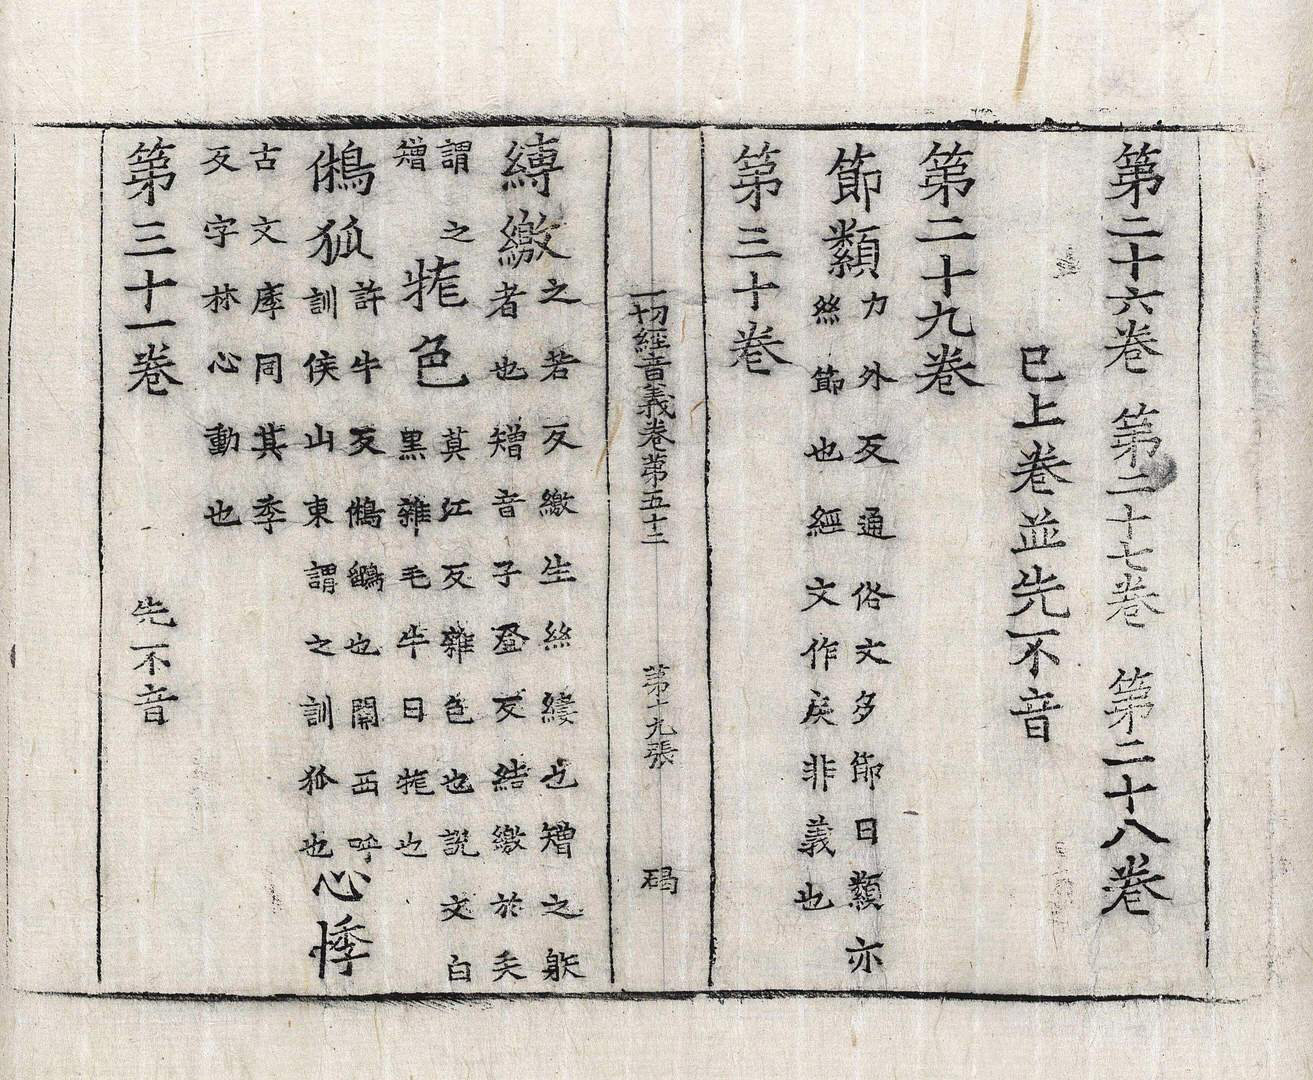 第二十六卷 第二十七卷 第二十八卷
已上卷並先不音
第二十九卷
節纇力外反通俗文多節曰纇亦
絲節也經文作戾非義也
第三十卷
一切經音義卷第五十二 第十九張 碣
縳繳之若反繳生絲縷也矰之䠶
者也矰音子登反結繳於矢
謂之矰
牻色莫江反雜色也說文白
黑雜毛牛曰牻也
鵂狐許牛反鵂鶹也關西呼
訓侯山東謂之訓狐也
心悸古文㾕同其季
反字林心動也
第三十一卷 先不音